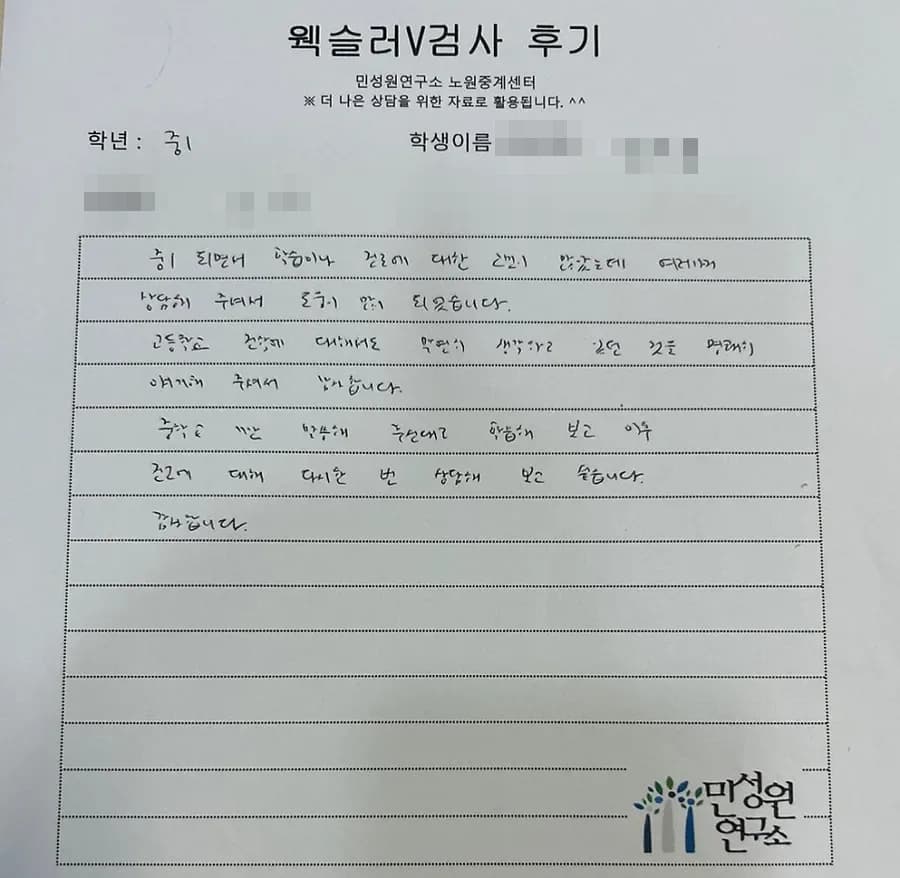 웩슬러V검사 후기
민성원연구소 노원중계센터
※ 더 나은 상담을 위한 자료로 활용됩니다. ^^
학년 : 중1
학생이름
중1 되면서 학습이나 진로에 대한 고민이 많았는데
상담해 주셔서 도움이 많이 되었습니다.
고등학교 진학에 대해서도 막연히 생각하고 있던 것을 명쾌히
얘기해 주셔서 감사합니다.
중학교 말씀해 주신대로 학습해 보고 이후
진로에 대해 다시한 번 상담해 보고 싶습니다.
감사합니다.
민성원
연구소